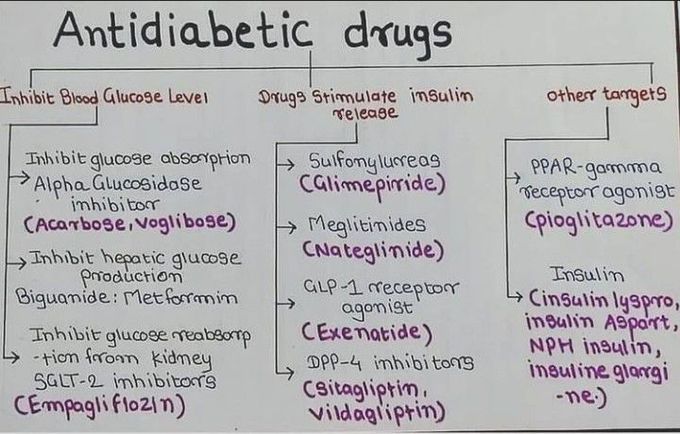 Antidiabetic drugs
Inhibit Blood Glucose Level
Inhibit glucose absorption
Alpha Glucosidase
inhibitor
(Acarbose, Voglibose)
Inhibit hepatic glucose
production
Biguanide: Metformin
Inhibit glucose reabsorp
-tion from kidney
SGLT-2 inhibitors
(Empagliflozin)
Drugs Stimulate insulin
release
Sulfonylureas
(Glimepiride)
Meglitinides
(Nateglinide)
GLP-1 receptor
agonist
(Exenatide)
DPP-4 inhibitors
(Sitagliptin,
Vildagliptin)
other targets
PPAR-gamma
receptor agonist
(pioglitazone)
Insulin
(insulin lyspro,
insulin Aspart,
NPH insulin,
insuline glargi
-ne.)